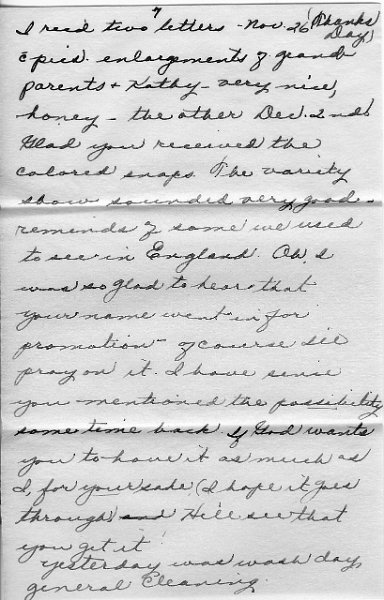 7
I recd two letters - Nov. 26 (Thanks Day)
c̄ pics. enlargements of grand-
parents & Kathy - very nice,
honey - the other Dec. 2nd.
Glad you received the
colored snaps. The variety
show sounded very good -
reminds of some we used
to see in England. Oh, I
was so glad to hear that
your name went in for
promotion - of course I'll
pray on it. I have since
you mentioned the possibility
some time back. If God wants
you to have it as much as
I, for your sake, (I hope it goes
through) and He'll see that
you get it!
Yesterday was wash day,
general Cleaning.